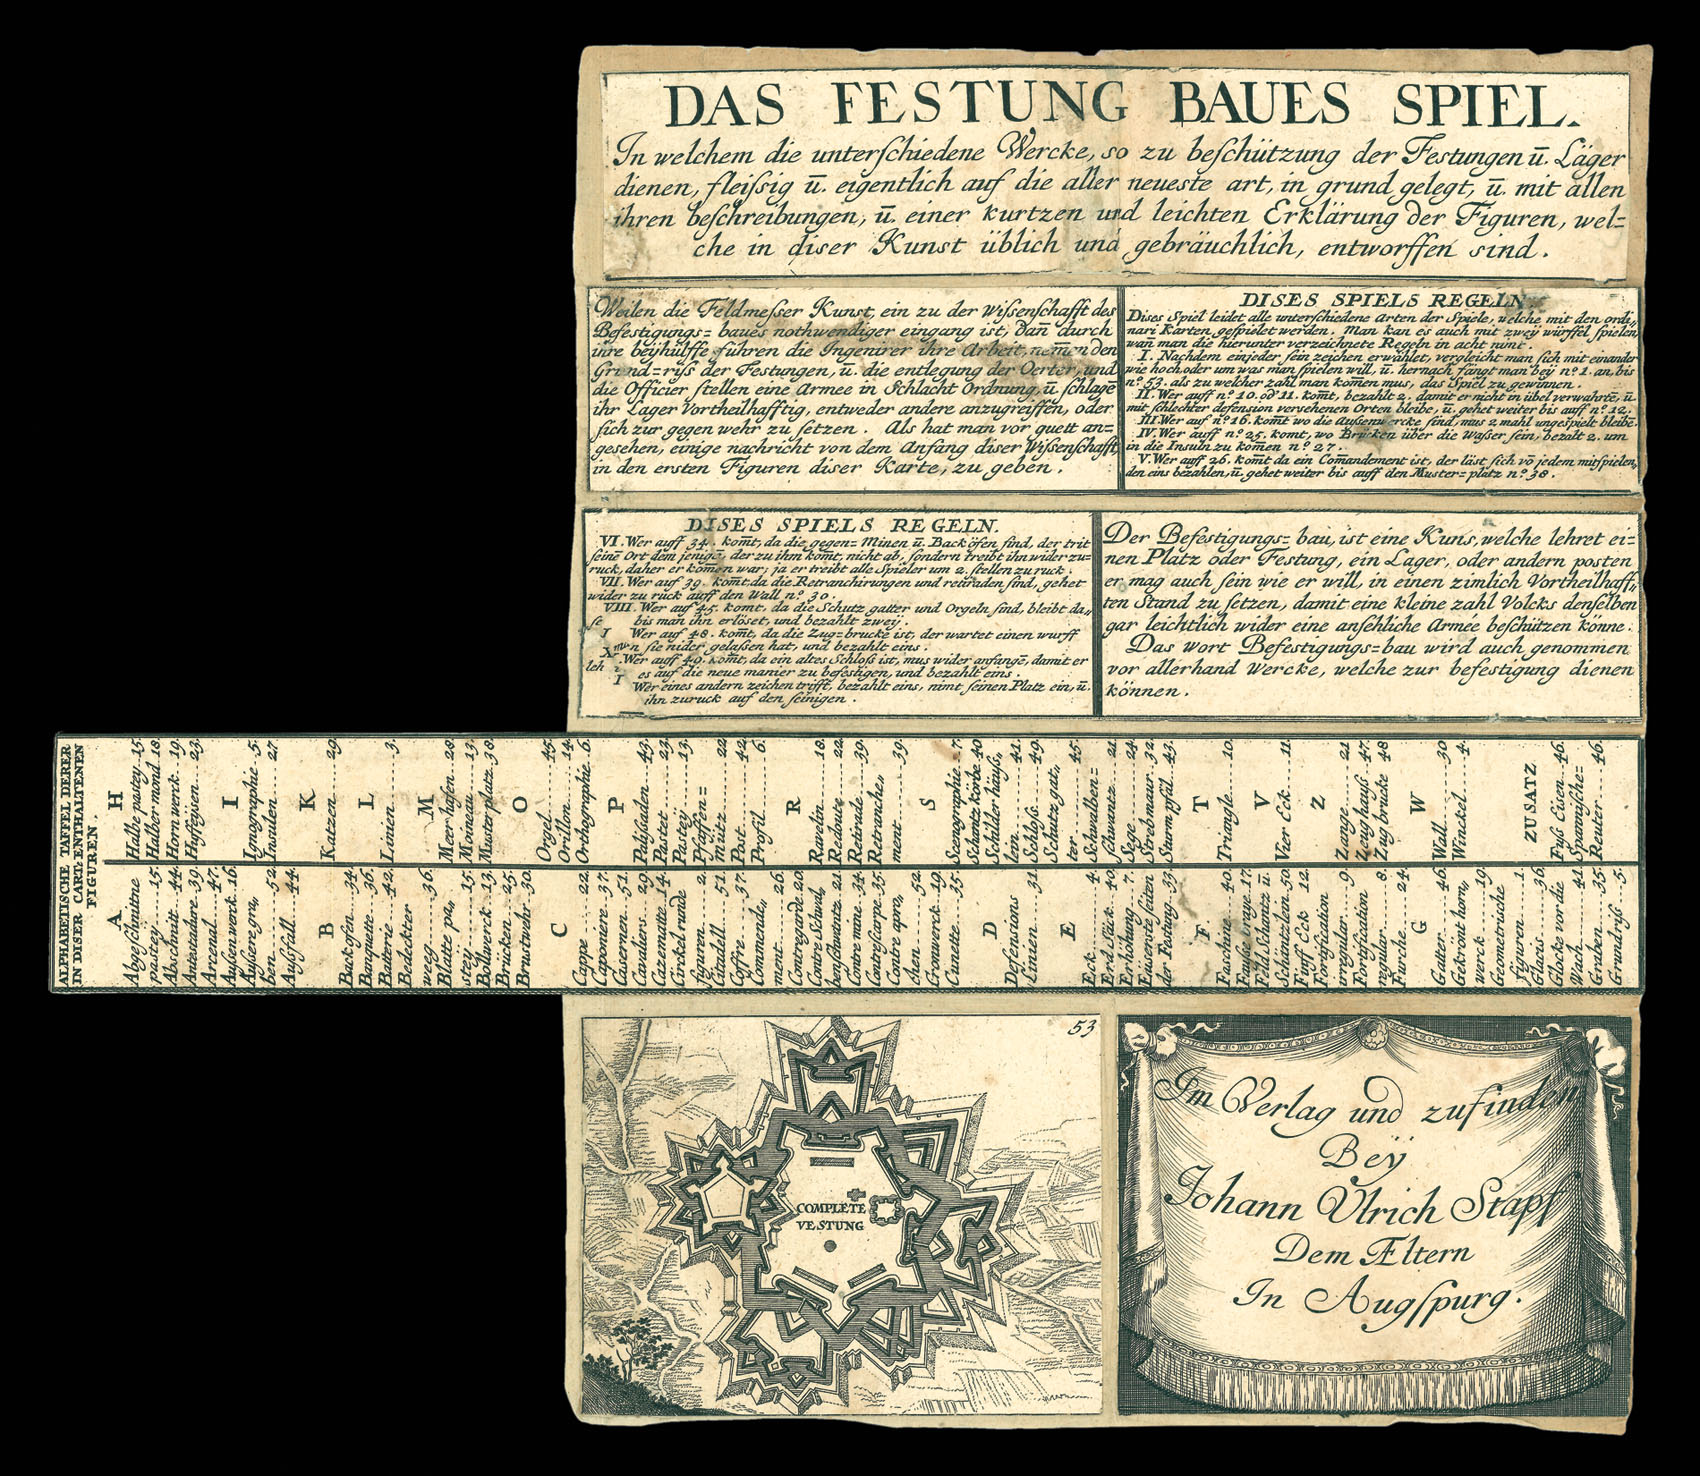 DAS FESTUNG BAUES SPIEL.
In welchem die unterschiedene Wercke, so zu beschützung der Festungen ū. Läger
dienen, fleissig ū. eigentlich auf die aller neueste art, in grund gelegt, ū. mit allen
ihren beschreibungen, ū. einer kurtzen und leichten Erklärung der Figuren, wel=
che in diser Kunst üblich und gebräuchlich, entworffen sind.
Weilen die Feldmesser Kunst, ein zu der wissenschafft des
Befestigungs= baues nothwendiger eingang ist, dan̄ durch
ihre beÿhülffe führen die Ingenirer ihre Arbeit, nem̄en den
Grund=riss der Festungen, ū. die entlegung der Oerter, und
die Officier stellen eine Armee in Schlacht Ordnung, ū schlagē
ihr Lager Vortheilhafftig, entweder andere anzugreiffen, oder
sich zur gegen wehr zu setzen. Als hat man vor guett an=
gesehen, einige nachricht von dem Anfang diser Wissenschafft
in den ersten Figuren diser Karte, zu geben.
DISES SPIELS REGELN
Dises Spiel leidet alle unterschiedene Arten der Spiele, welche mit den ordi„
nari Karten gespielet werden. Man kan es auch mit zweÿ würffel spielen
wan̄ man die hierunter verzeichnete Regeln in acht nim̄t.
I. Nachdem einjeder sein zeichen erwählet, vergleicht man sich mit einander
wie hoch oder um was man spielen will, ū. hernach fängt man beÿ nº 1. an, bis
nº 53. als zu welcher zahl man kom̄en mus, das Spiel zu gewinnen.
II. Wer auff nº 10. od' 11. kom̄t, bezahlt 2. damit er nicht in übel verwahrtē, ū.
mit schlechter defension versehenen Orten bleibe, ū. gehet weiter bis auff nº 12.
III. Wer auf nº 16. kom̄t wo die Aussenwercke sind, mus 2 mahl ungespielt bleibē.
IV. Wer auff nº 25. komt, wo Brücken über die Wasser sein, bezalt 2. um
in die Insuln zu kom̄en nº 27.
V. Wer auff 26. kom̄t da ein Com̄andement ist, der läst sich vō jedem mitspielen
den eins bezahlen, ū. gehet weiter bis auff den Muster=platz nº 38.
DISES SPIELS REGELN.
VI. Wer auff 34. kom̄t, da die gegen= Minen ū. Backöfen sind, der trit
seinē Ort dem jenigē, der zu ihm kom̄t, nicht ab, sondern treibt ihn wider zu=
ruck, daher er kom̄en war; ja er treibt alle Spieler um 2. stellen zu ruck.
VII. Wer auf 39. kom̄t, da die Retranchirungen und retiraden sind, gehet
wider zu rück auff den Wall nº 30.
VIII. Wer auf 45. komt, da die Schutz gatter und Orgeln sind, bleibt da„
se bis man ihn erlöset, und bezahlt zweÿ.
I Wer auf 48. kom̄t, da die Zug=brucke ist, der wartet einen wurff
n sie nider gelassen hat, und bezahlt eins.
X. Wer auff 49. kom̄t, da ein altes Schloss ist, mus wider anfangē, damit er
es auf die neue manier zu befestigen, und bezahlt eins.
I Wer eines andern zeichen trifft, bezahlt eins, nimt seinen Platz ein, ū.
ihn zuruck auf den seinigen.
Der Befestigungs= bau, ist eine Kuns, welche lehret ei=
nen Platz oder Festung, ein Lager, oder andern posten
er mag auch sein wie er will, in einen zimlich Vortheilhaff„
ten Stand zu setzen, damit eine kleine zahl Volcks denselben
gar leichtlich wider eine ansehliche Armée beschützen könne.
Das wort Befestigungs=bau wird auch genommen
vor allerhand Wercke, welche zur befestigung dienen
können.
ALPHABETISCHE TAFFEL DERER
IN DISER CARTE ENTHALTENEN
FIGUREN.
A
Abgeschnitne
pastey 15.
Abschnitt 44.
Ausstadure 39.
Arcenal 47.
Aussenwerk 16.
Aussere gra„
ben 52.
Aussfall 44.
B
Backofen 34.
Banquette 36.
Batterie 42.
Bedeckter
weeg 36.
Blatte pa„
stey 15.
Bollwerck 13.
Brücken 25.
Brustwehr 30.
C
Cappe 22.
Caponiere 37.
Casernen 51.
Cavaliers 29.
Cazematte 14.
Circkel runde
figuren 2.
Citadell 51.
Coffre 37.
Commende„
ment 26.
Contregarde 20.
Contre Schwal„
benschwantz 21.
Contre mine 34.
Contrescarpe 35.
Contre apro„
chen 52.
Cronwerck 19.
Cunette 35.
D
Defensions
Linien 31.
E
Eck 4.
Erd Säck 40.
Erhöhung 7.
Eüserste seiten
der Festung 33.
F
Faschine 40.
Fausse braye 17.
Feld Schantz ū.
Schäntzlein 50.
Fünff Eck 12.
Fortification
irregular 9.
Fortification
regular 8.
Furche 24.
G
Gatter 46.
Gekrönt horn„
werck 19.
Geometrische
figuren 1.
Glacis 36.
Glocke vor die
Wach 41.
Graben 35.
Grundriss 5.
H
Halbe pastey 15.
Halber mond 18.
Hornwerck 19.
Huffeÿsen 23.
I
Ignographie 5.
Insulen 27.
K
Katzen 29.
L
Linien 3.
M
Meer hafen 28.
Moineau 13.
Musterplatz 38.
O
Orgel 45.
Orillon 14.
Orthographie 6.
P
Palisaden 43.
Pastet 23.
Pastey 13.
Pfaffen=
mütz 22.
Post 42.
Profil 6.
R
Ravelin 18.
Redoute 22.
Retirade 39.
Retranche„
ment 39.
S
Scenographie 7.
Schantz körbe 40
Schilder häuss„
lein 41.
Schloss 49.
Schutz gat„
ter 45.
Schwalben=
schwantz 21.
Sege 24.
Strebmaur 32.
Sturm pfäl 43.
T
Triangle 10.
V
Vier Eck 11.
Z
Zange 21
Zeughauss 47.
Zug brucke 48
W
Wall 30
Winckel 4.
ZUSATZ
Fuss Eisen 46.
Spannische=
Reuter 46.
53
COMPLETE
VESTUNG
Im Verlag und zufinden
Beÿ
Johann Ulrich Stapf
Dem Æltern
In Augspurg.